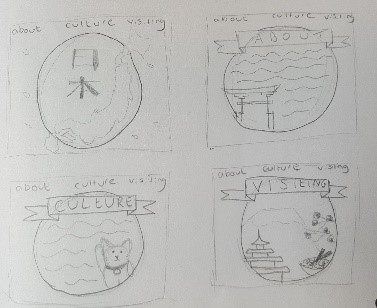 about culture visiting
日
木
about culture visting
ABOUT
about culture visiting
CULTURE
about culture visiting
VISITING